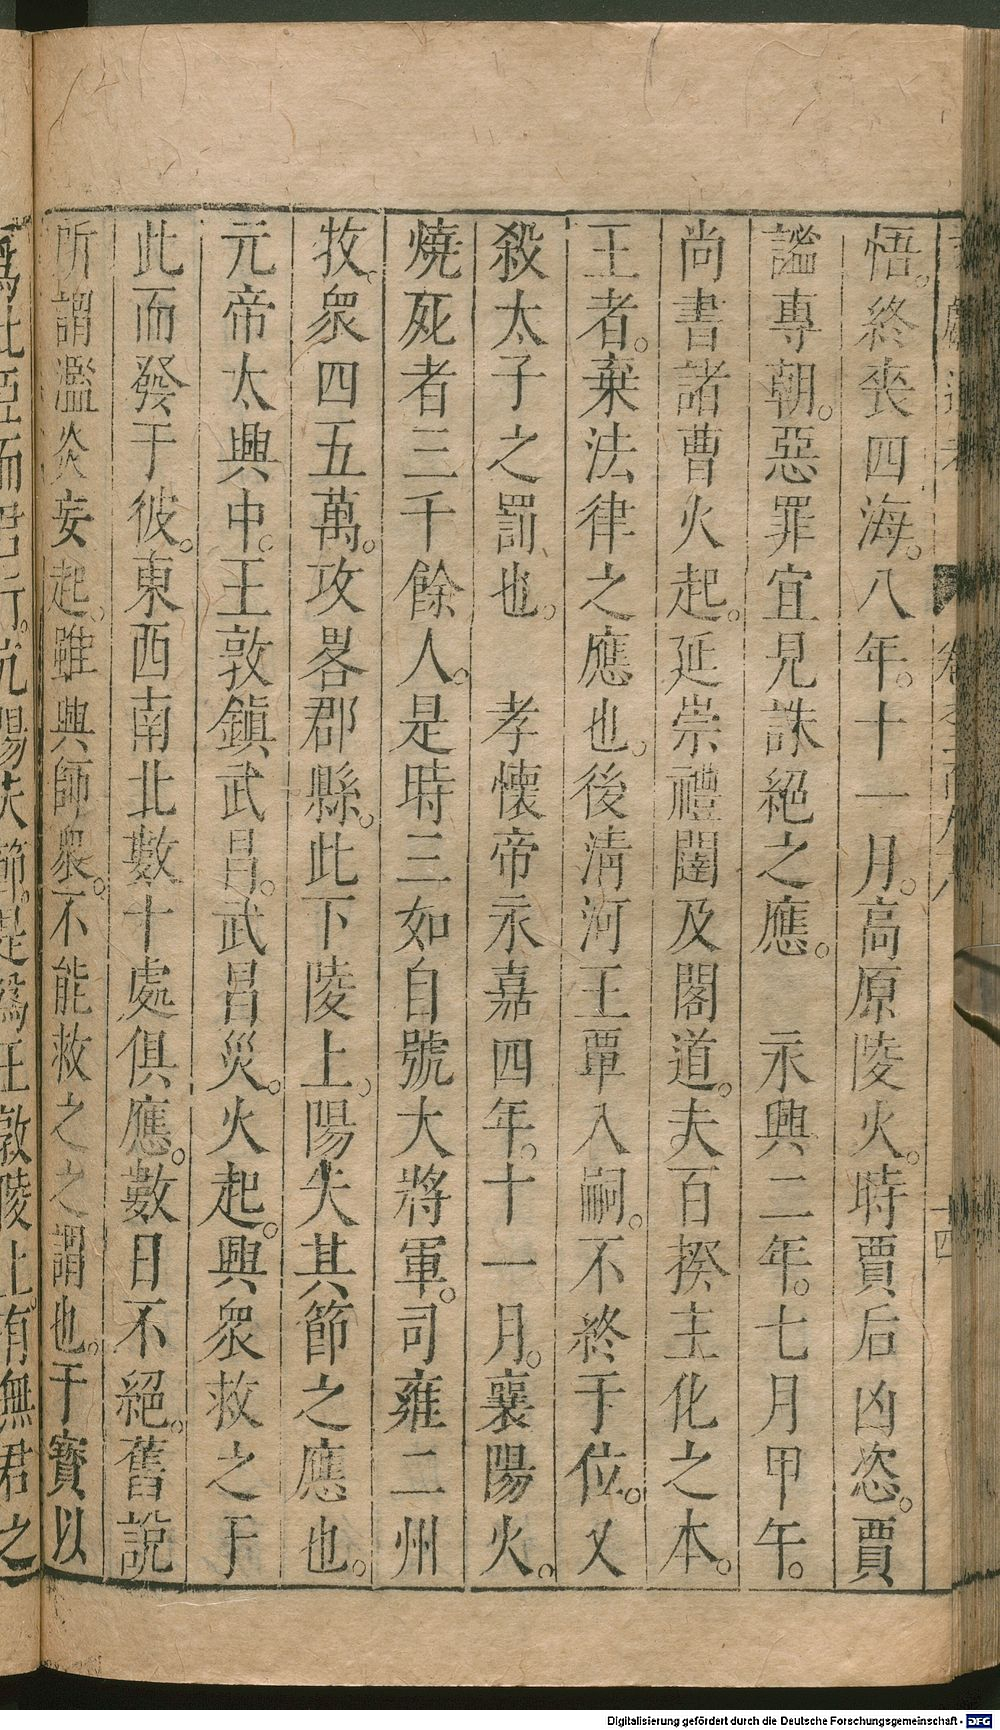 悟。終喪四海。八年。十一月。高原陵火。時賈后凶恣。賈
謐專朝。惡罪宜見誅絕之應。　永興二年。七月甲午。
尚書諸曹火起。延崇禮闥及閣道。夫百揆主化之本。
王者。棄法律之應也。後淸河王覃入嗣。不終于位。又
殺太子之罰也。　孝懷帝永嘉四年。十一月。襄陽火。
燒死者三千餘人。是時三如自號大將軍。司雍二州
牧。衆四五萬。攻畧郡縣。此下陵上。陽失其節之應也。
元帝太興中。王敦鎮武昌。武昌災。火起。興衆救之于
此而發于彼。東西南北數十處俱應。數日不絕。舊說
所謂濫炎妄起。雖興師衆。不能救之之謂也。干寶以
爲此臣而君行。亢陽失節。是爲王敦陵上。有無君之
十四
Digitalisierung gefördert durch die Deutsche Forschungsgemeinschaft - DFG